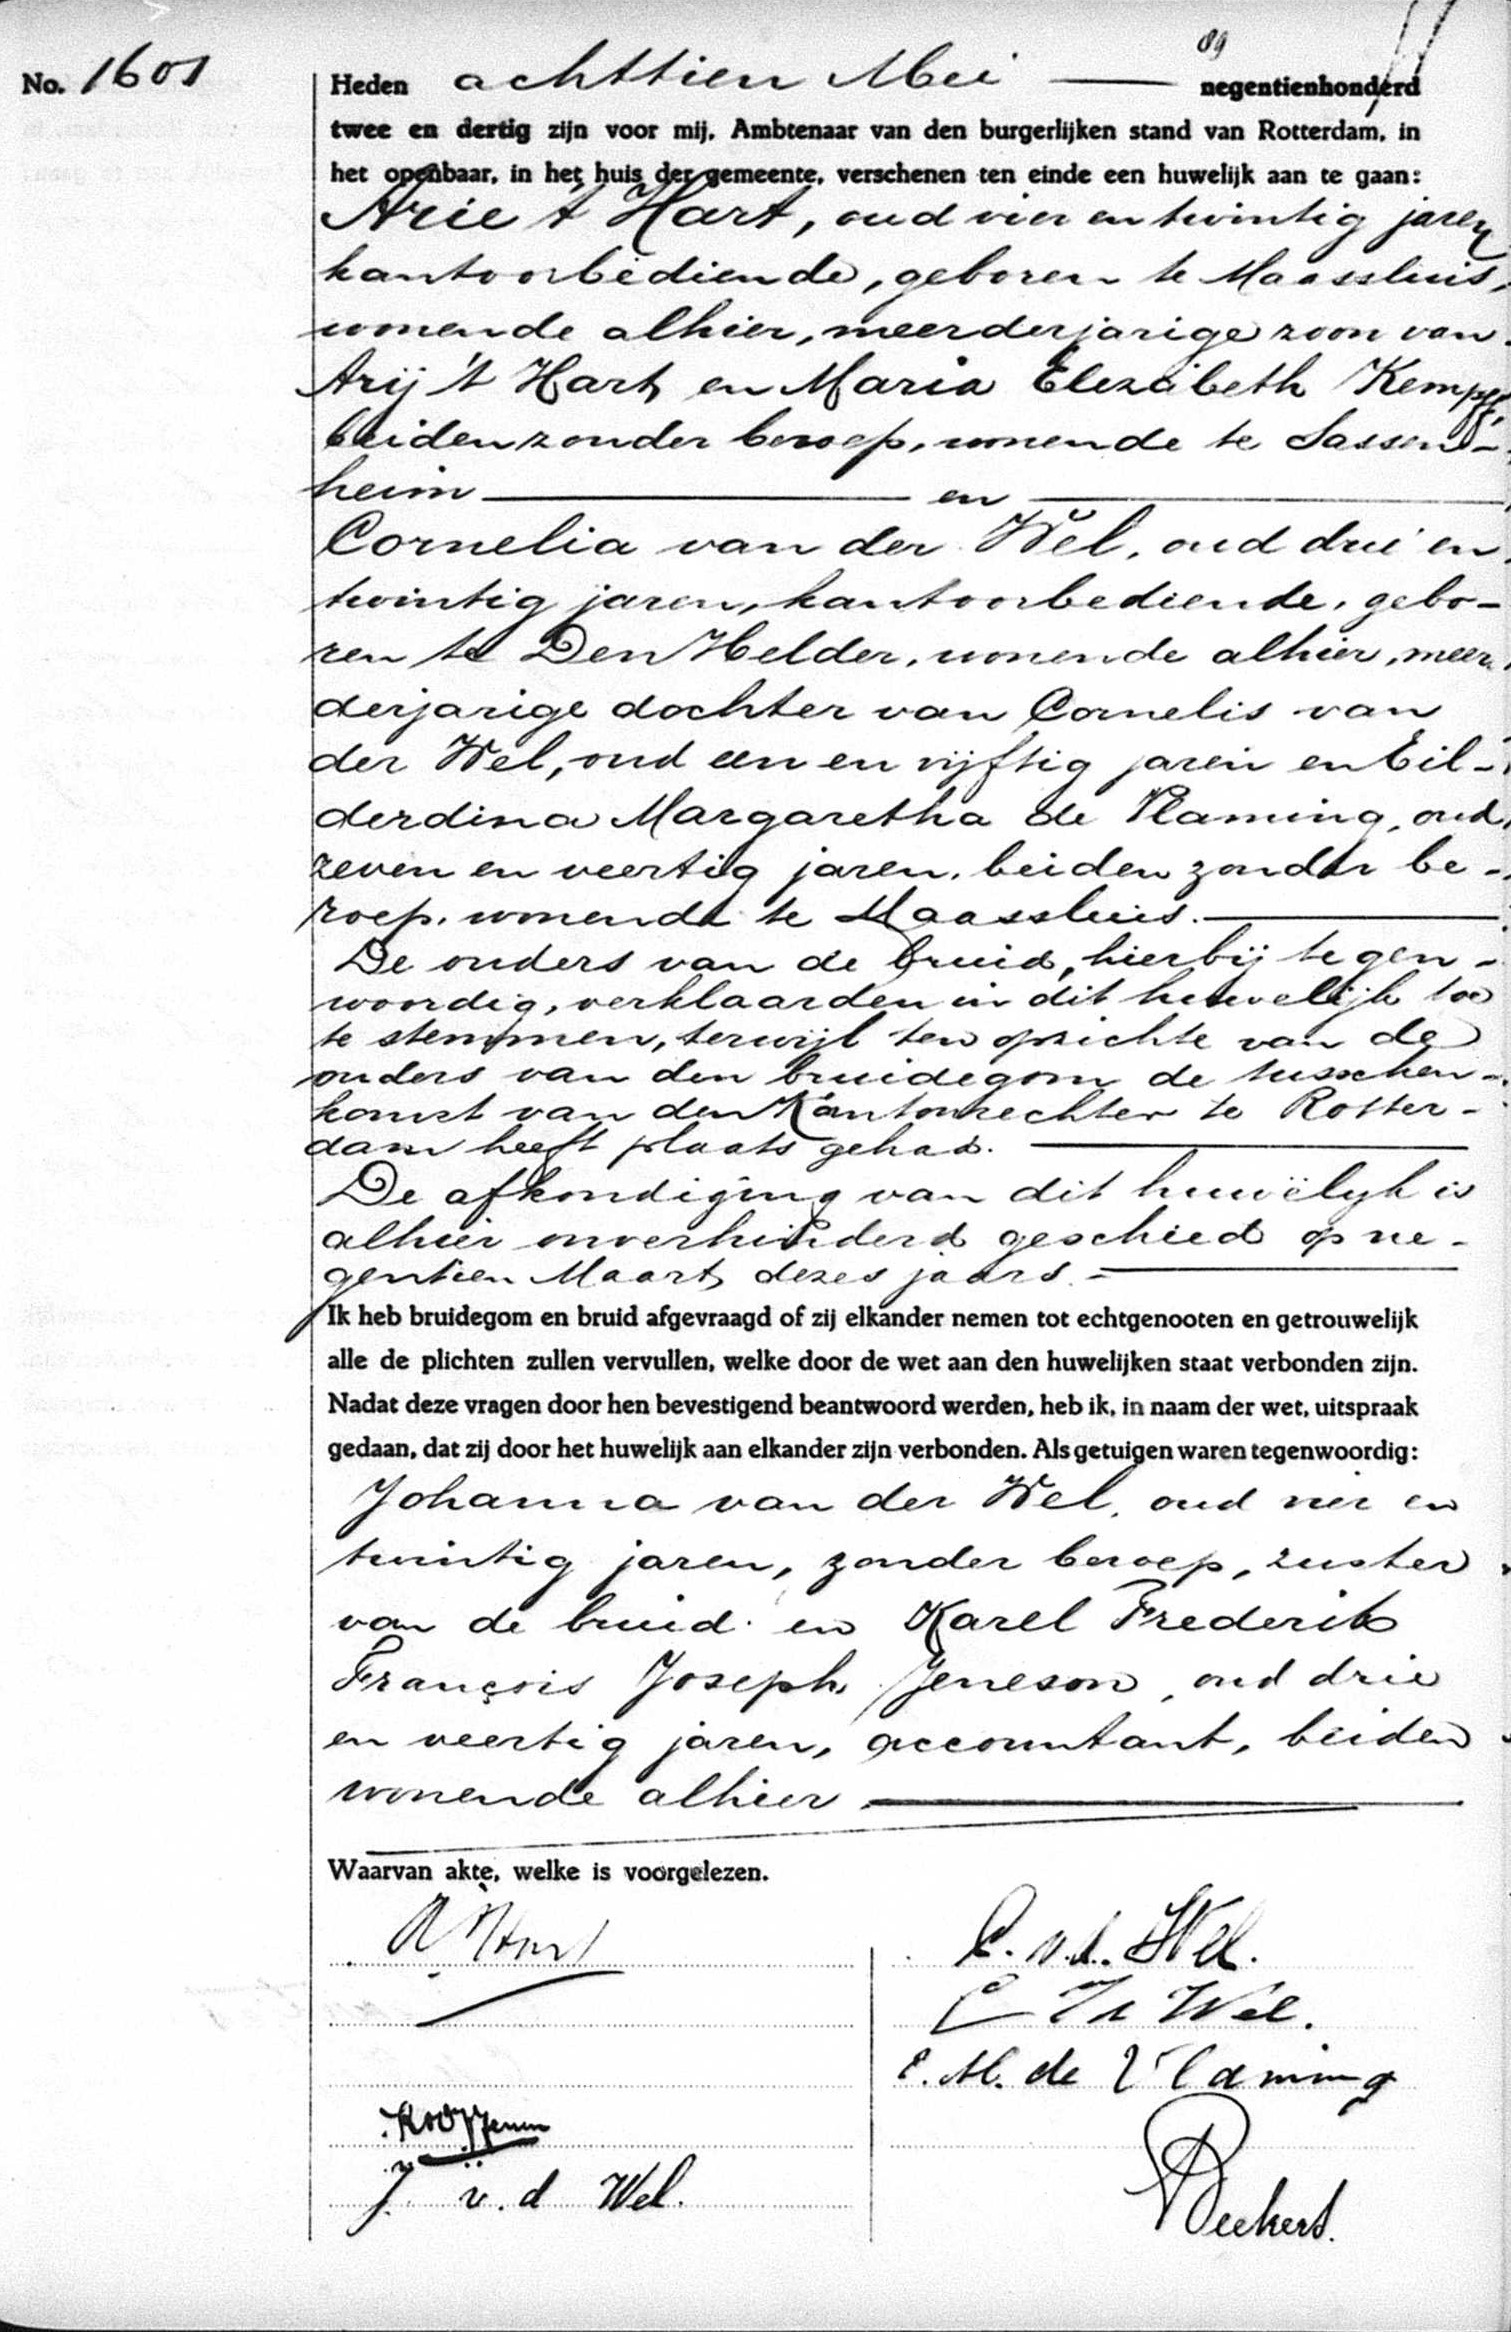 89
No. 1601 Heden achttien Mei — negentienhonderd
twee en dertig zijn voor mij, Ambtenaar van den burgerlijken stand van Rotterdam, in
het openbaar, in het huis der gemeente, verschenen ten einde een huwelijk aan te gaan:
Arie 't Hart, oud vier en twintig jaren
kantoorbediende, geboren te Maassluis,
wonende alhier, meerderjarige zoon van
Arij 't Hart en Maria Elezabeth Kempff,
beiden zonder beroep, wonende te Sassen-
heim — en —
Cornelia van der Wel, oud drie en
twintig jaren, kantoorbediende, gebo-
ren te Den Helder, wonende alhier, meer
derjarige dochter van Cornelis van
der Wel, oud een en vijftig jaren en Eil-
derdina Margaretha de Vlaming, oud
zeven en veertig jaren, beiden zonder be-
roep, wonende te Maassluis. —
De ouders van de bruid, hierbij tegen-
woordig, verklaarden in dit huwelijk toe
te stemmen, terwijl ten opzichte van de
ouders van den bruidegom de tusschen-
komst van den Kantonrechter te Rotter-
dam heeft plaats gehad. —
De afkondiging van dit huwelijk is
alhier onverhinderd geschied op ne-
gentien Maart dezes jaars. —
Ik heb bruidegom en bruid afgevraagd of zij elkander nemen tot echtgenooten en getrouwelijk
alle de plichten zullen vervullen, welke door de wet aan den huwelijken staat verbonden zijn.
Nadat deze vragen door hen bevestigend beantwoord werden, heb ik, in naam der wet, uitspraak
gedaan, dat zij door het huwelijk aan elkander zijn verbonden. Als getuigen waren tegenwoordig:
Johanna van der Wel, oud vier en
twintig jaren, zonder beroep, zuster
van de bruid en Karel Frederik
François Joseph Jeneson, oud drie
en veertig jaren, accountant, beiden
wonende alhier —
Waarvan akte, welke is voorgelezen.
A 't Hart
C. v.d. Wel.
C Wel.
E. M. de Vlaming
J. v. d Wel.